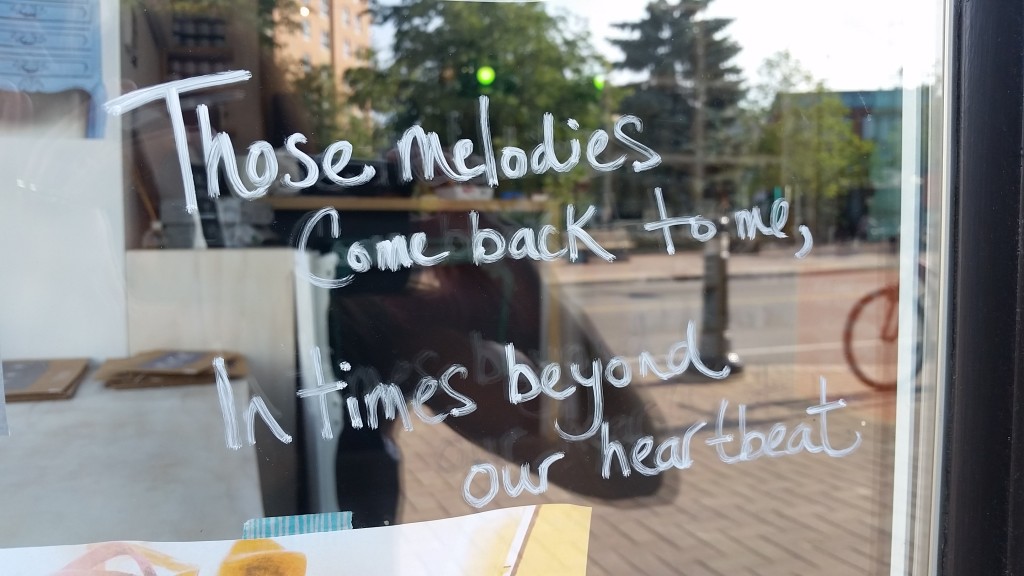 Those melodies
Come back to me,
In times beyond
our heartbeat